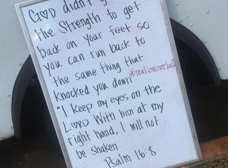 GOD didn't
the Strength to get
back on your feet so
you can run back to
the same thing that
knocked you down!
"I keep my eyes on the
LORD. With him at my
right hand, I will not
be shaken
Psalm 16:8